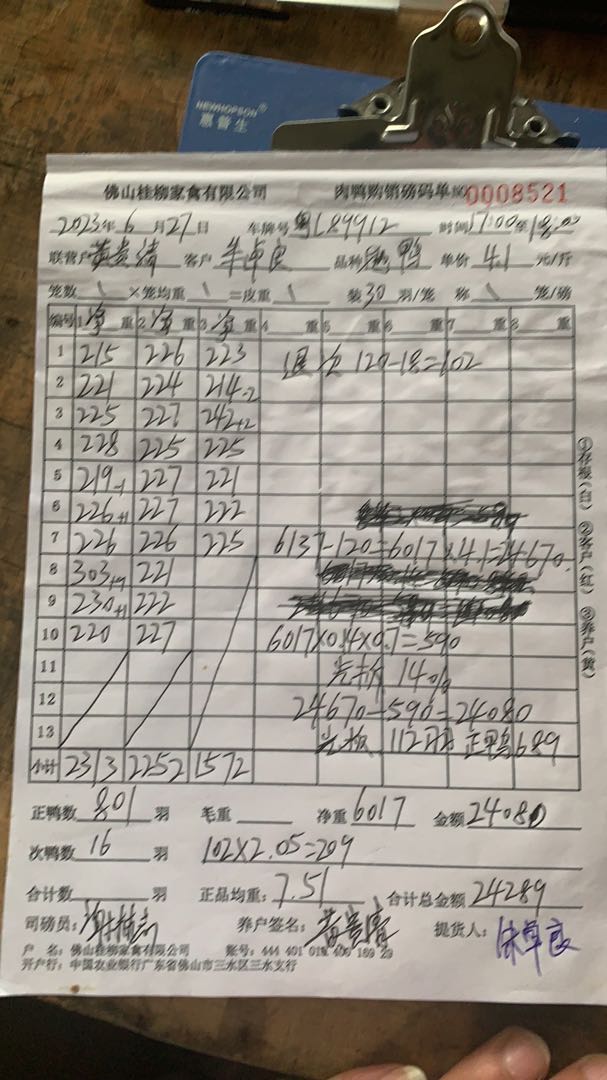 NEWHOPSON®
惠普生
佛山桂柳家禽有限公司 肉鸭购销磅码单 № 0008521
2023年6月27日 车牌号 粤L89912 时间 17:00至18:00
联营户 客户 品种 鸭 单价 4.1 元/斤
笼数 \ ×笼均重 \ =皮重 \ 装30羽/笼 称 \ 笼/磅
编号 1净重 2净重 3净重 4重 5重 6重 7重 8重
1 215 226 223 退次 120-18=102
2 221 224 214-2
3 225 227 242+2
4 228 225 225
5 219-1 227 221
6 226+1 227 222
7 226 226 225 6137-120=6017×4.1=24670.
8 303+9 221
9 230+1 222
10 220 227 6017×0.14×0.7=590
11 光板 14%
12 24670-590=24080
13 光板 112羽 正鸭689
小计 2313 2252 1572
正鸭数 801 羽 毛重 净重 6017 金额 24080
次鸭数 16 羽 102×2.05=209
合计数 羽 正品均重: 7.51 合计总金额 24289
司磅员: 养户签名: 提货人:
户 名: 佛山桂柳家禽有限公司 账号: 444 401 01
开户行: 中国农业银行广东省佛山市三水区三水支行
①存根(白) ②客户(红) ③养户(黄)